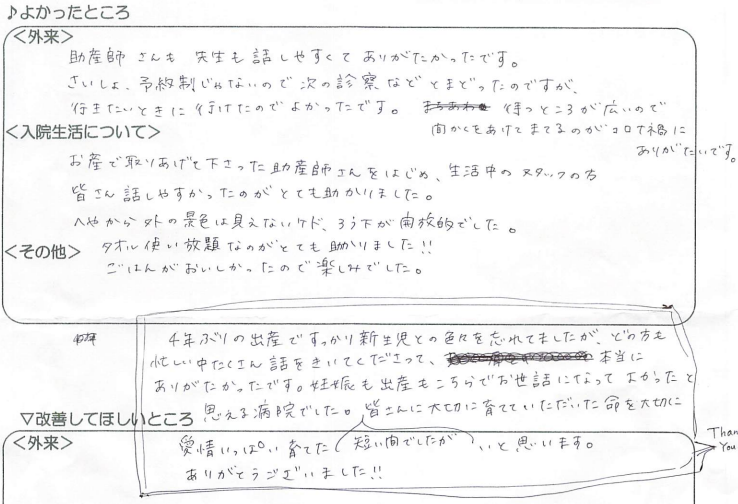 ♪よかったところ
＜外来＞
助産師さんも 先生も話しやすくてありがたかったです。
さいしょ、予約制じゃないので次の診察などとまどったのですが、
行きたいときに行けたのでよかったです。 待つところが広いので
間かくをあけてまてるのがコロナ禍に
ありがたいです。
＜入院生活について＞
お産で取りあげて下さった助産師さんをはじめ、生活中のスタッフの方
皆さん話しやすかったのがとても助かりました。
へやから外の景色は見えないケド、ろう下が開放的でした。
＜その他＞ タオル使い放題なのがとても助かりました!!
ごはんがおいしかったので楽しみでした。
4年ぶりの出産ですっかり新生児との色々を忘れてましたが、どの方も
忙しい中たくさん話をきいてくださって、 本当に
ありがたかったです。妊娠も出産もこちらでお世話になってよかったと
思える病院でした。皆さんに大切に育てていただいた命を大切に
▽改善してほしいところ
（短い間でしたが）
＜外来＞
愛情いっぱい育てたいと思います。
ありがとうございました!!
Than
You